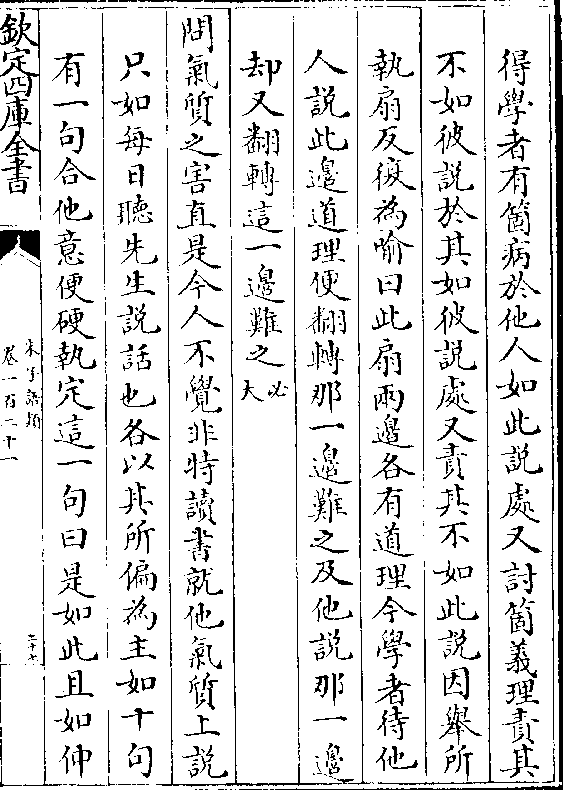 得學者有箇病於他人如此說處又討箇義理責其
不如彼說於其如彼說處又責其不如此說因舉所
執扇反復為喻曰此扇兩邊各有道理今學者待他
人說此邊道理便翻轉那一邊難之及他說那一邊
却又翻轉這一邊難之必大
問氣質之害直是今人不覺非特讀書就他氣質上說
只如每日聽先生說話也各以其所偏為主如十句
有一句合他意便硬執定這一句曰是如此且如仲
欽定四庫全書
朱子語類
卷一百二十一